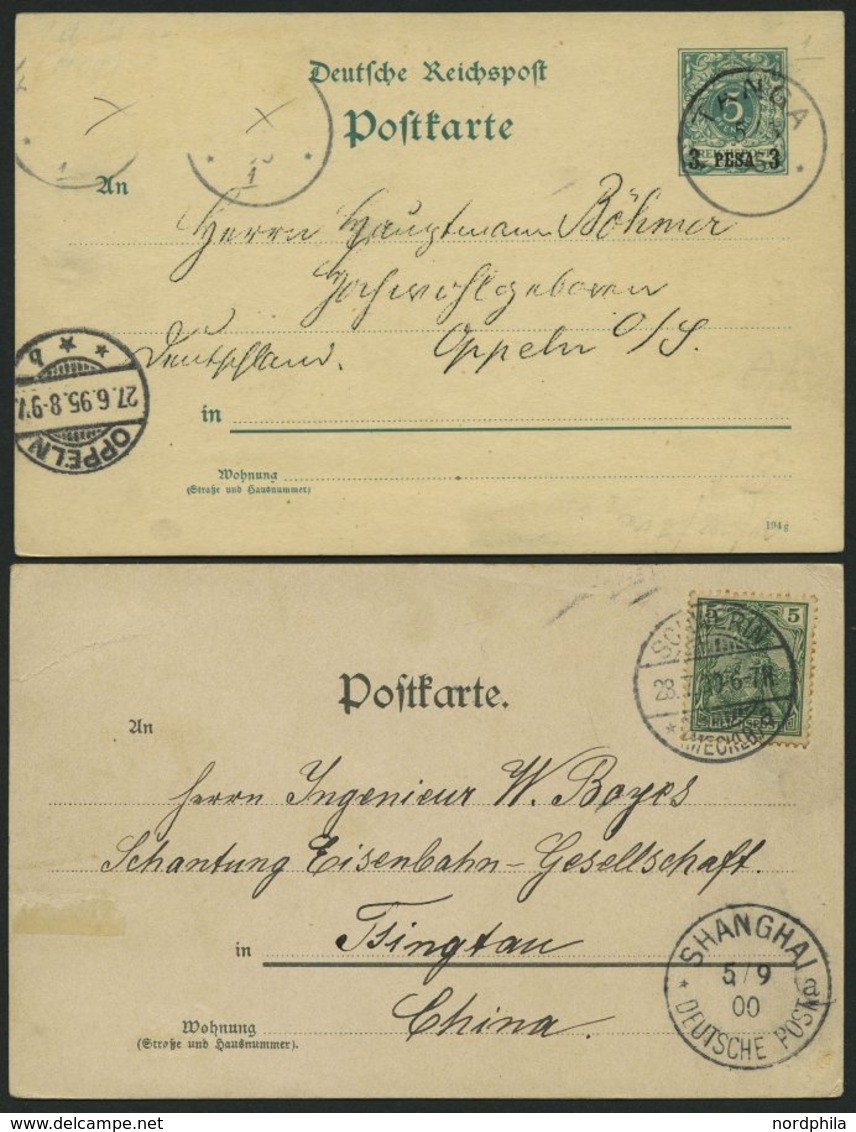 Deutsche Reichspost
Postkarte
5
TANGA
REICHSPOST
3 PESA 3
An
Herrn Hauptmann Böhmer
Hochwohlgeboren
Deutschland. Oppeln O/S.
b
27.6.95.8-9V.
OPPELN
in
Wohnung
(Straße und Hausnummer)
194g
5 5
SCHWERIN
6-7N
(MECKLB)
Postkarte.
An
Herrn Ingenieur W. Boyes
Schantung Eisenbahn-Gesellschaft.
in Tsingtau
China.
SHANGHAI
5/9
00
a
DEUTSCHE POST
Wohnung
(Straße und Hausnummer).
www.delcampe.net
nordphila